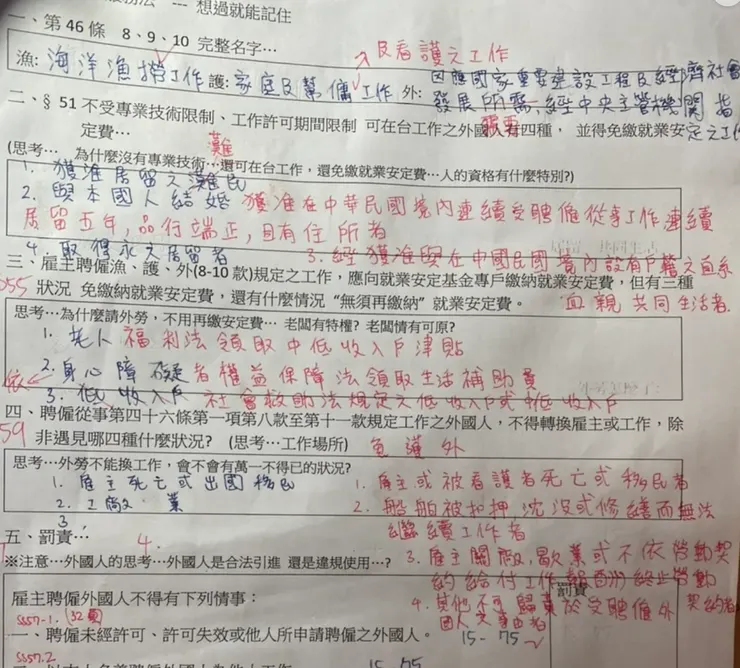 想過就能記住
一、第 46 條　8、9、10 完整名字…
及看護之工作
漁: 海洋漁撈工作 護: 家庭及幫傭工作 外: 因應國家重要建設工程及經濟社會
發展所需,經中央主管機關指
二、§ 51 不受專業技術限制、工作許可期間限制 可在台工作之外國人有四種， 並得免繳就業安定費…
定之工作
(思考… 為什麼沒有專業技術…還可在台工作，還免繳就業安定費…人的資格有什麼特別?)
難
1. 獲准居留之難民
2. 與本國人結婚 獲准在中華民國境內連續受聘僱從事工作連續
居留五年,品行端正,且有住所者
4. 取得永久居留者 3. 經獲准與在中國民國境內設有戶籍之直系
三、雇主聘僱漁、護、外(8-10 款)規定之工作，應向就業安定基金專戶繳納就業安定費，但有三種
55 狀況 免繳納就業安定費，還有什麼情況 “無須再繳納” 就業安定費。 血親共同生活者.
思考…為什麼請外勞，不用再繳安定費… 老闆有特權? 老闆情有可原?
1. 老人福利法領取中低收入戶津貼
2. 身心障礙者權益保障法領取生活補助費
依
3. 低收入戶 社會救助法規定之低收入戶或中低收入戶
四、聘僱從事第四十六條第一項第八款至第十一款規定工作之外國人，不得轉換雇主或工作，除
59 非遇見哪四種什麼狀況? (思考…工作場所) 魚護外
思考…外勞不能換工作，會不會有萬一不得已的狀況?
1. 雇主死亡或出國移民 1. 雇主或被看護者死亡或移民者
2. 工廠 業 2. 船舶被扣押,沈沒或修繕而無法
3. 繼續工作者
五、罰責… 4.
※注意…外國人的思考…外國人是合法引進 還是違規使用…?
3. 雇主關廠,歇業或不依勞動契
約給付工作報酬終止勞動
契約者
雇主聘僱外國人不得有下列情事： 罰責
4. 其他不可歸責於受聘僱外
國人之事由者
§§57-1.
一、聘僱未經許可、許可失效或他人所申請聘僱之外國人。 15-75
§§57.2
15 75